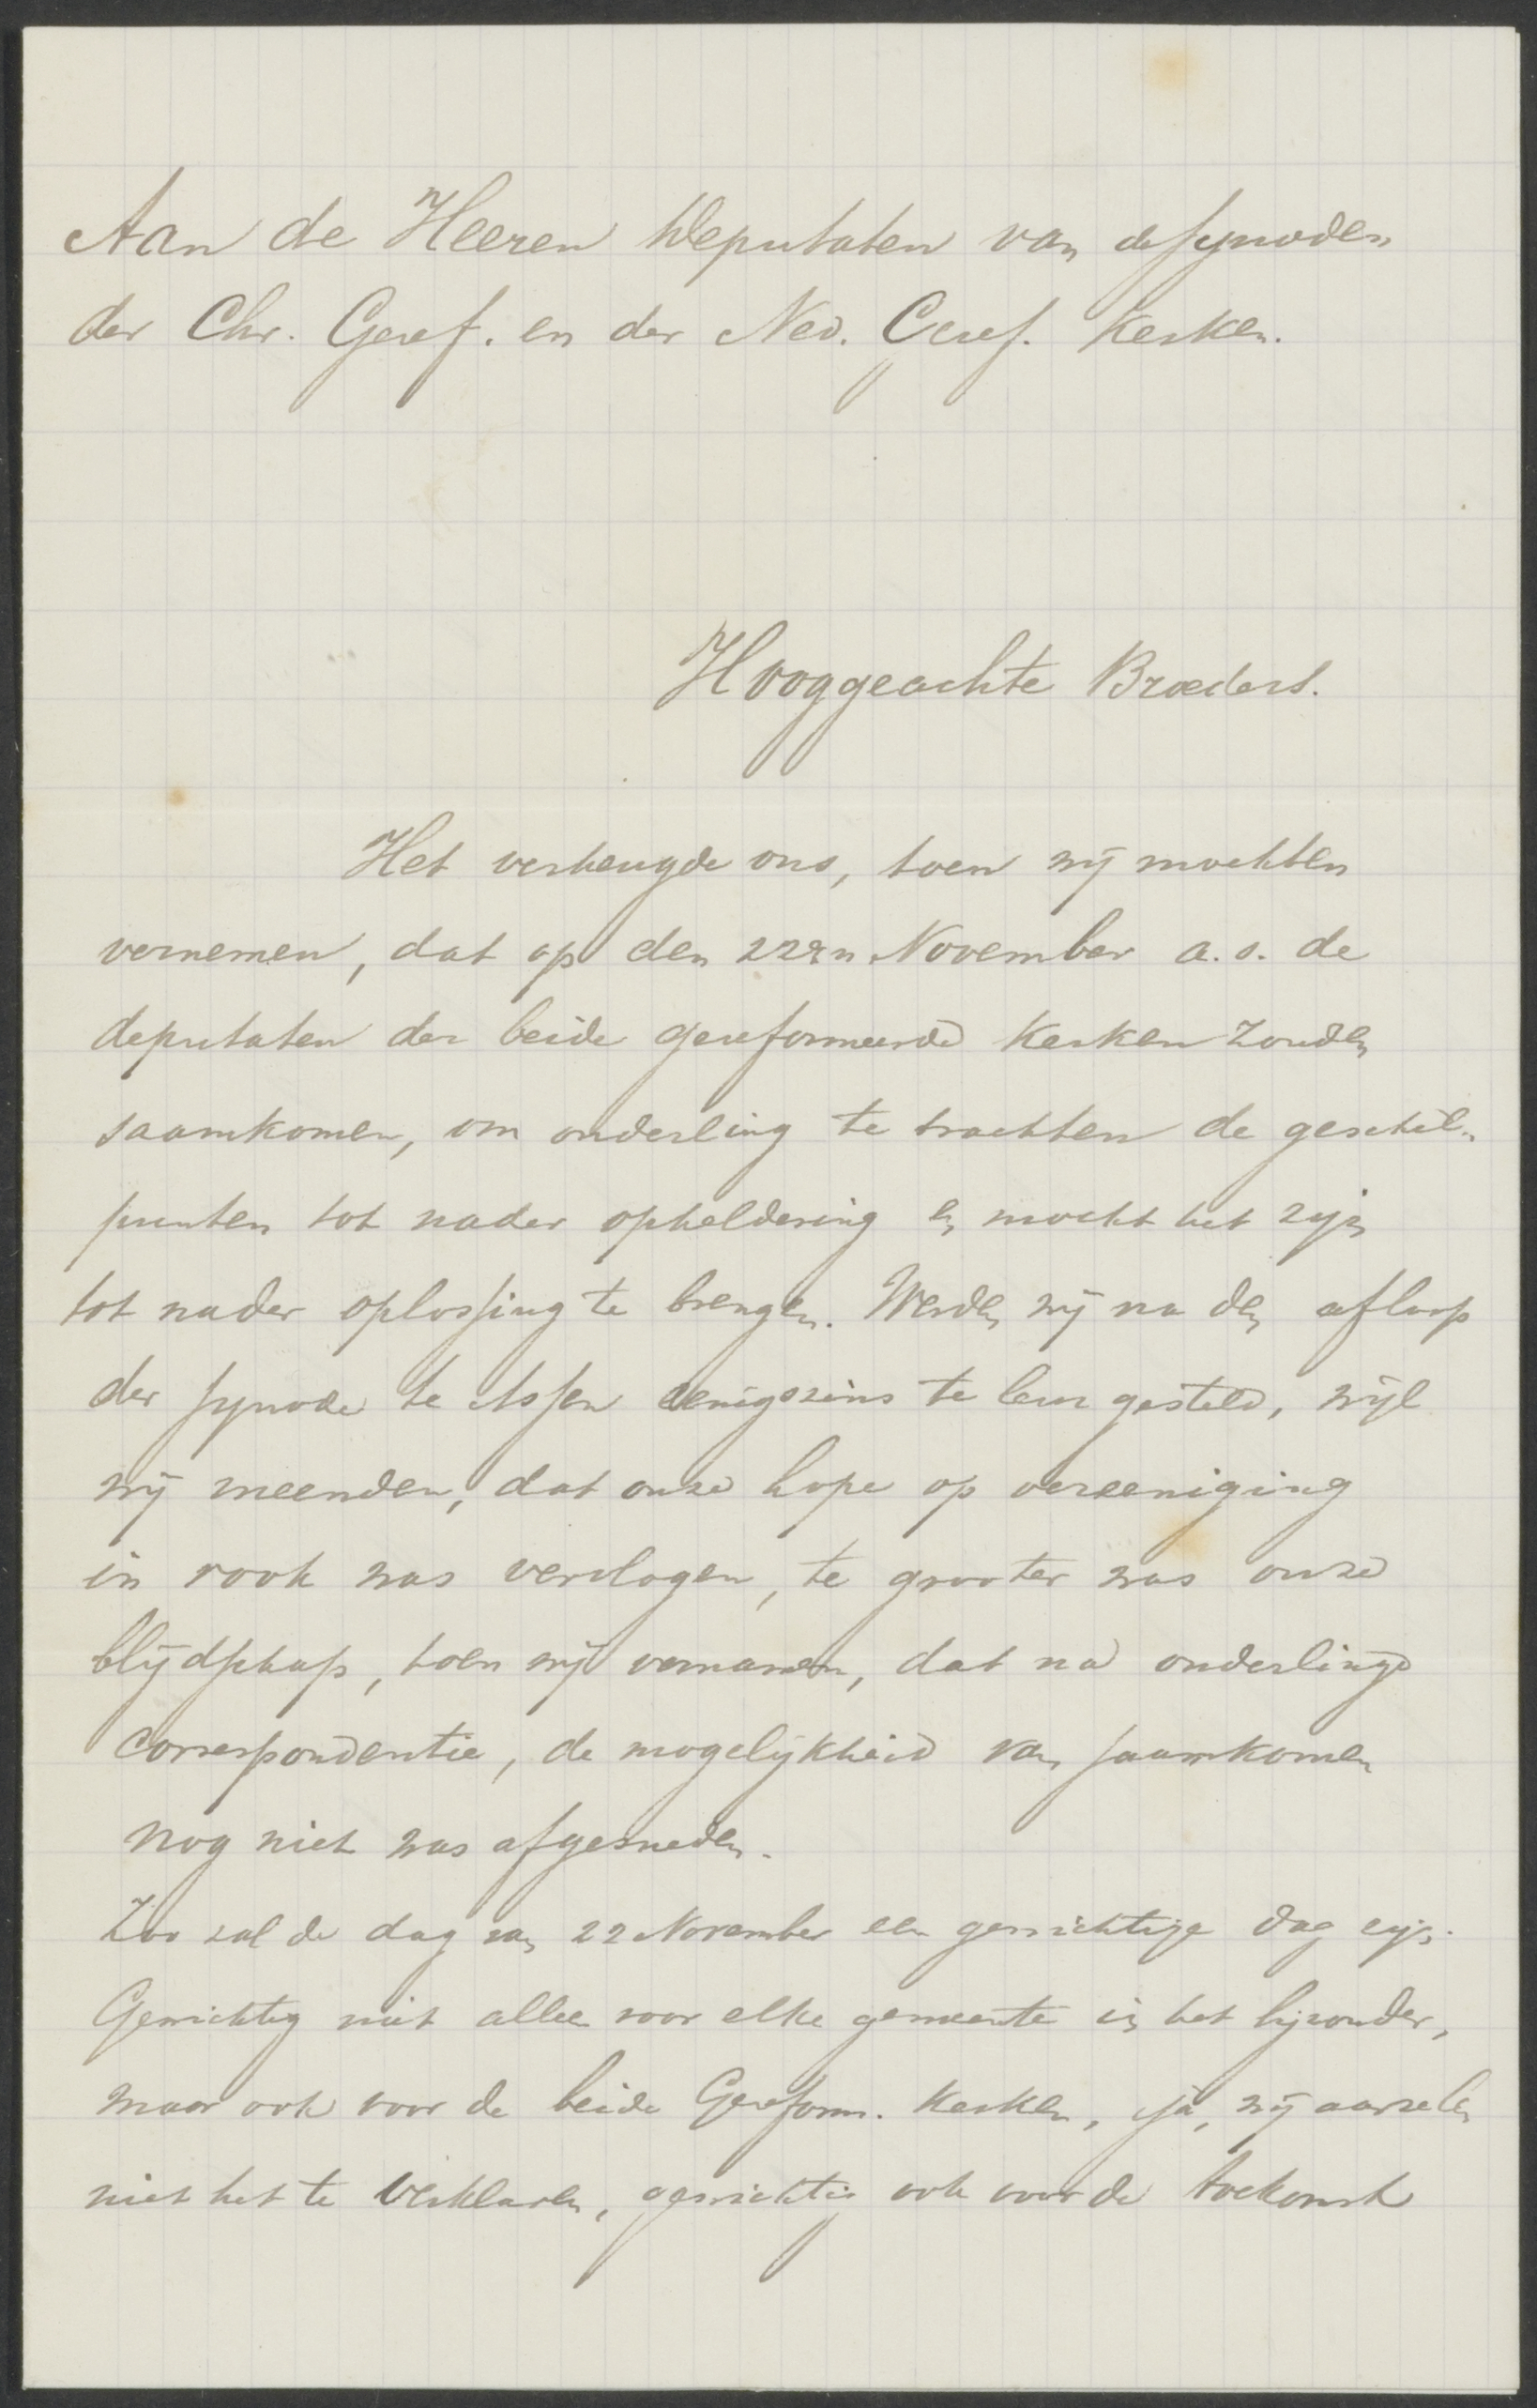 Aan de Heeren Deputaten van de synoden
der Chr. Geref. en der Ned. Geref. Kerken.
Hooggeachte Broeders.
Het verheugde ons, toen wij mochten
vernemen, dat op den 22en November a.s. de
deputaten der beide gereformeerde Kerken zouden
saamkomen, om onderling te trachten de geschil-
punten tot nader opheldering en mocht het zijn
tot nader oplossing te brengen. Werden wij na den afloop
der synode te Assen eenigszins te leur gesteld, wijl
wij meenden, dat onze hope op vereeniging
in rook was vervlogen, te grooter was onze
blijdschap, toen wij vernamen, dat na onderlinge
correspondentie, de mogelijkheid van saamkomen
nog niet was afgesneden.
Zoo zal de dag van 22 November een gewichtige dag zijn.
Gewichtig niet alleen voor elke gemeente in het bijzonder,
maar ook voor de beide Gereform. Kerken, ja, wij aarzelen
niet het te verklaren, gewichtig ook voor de toekomst